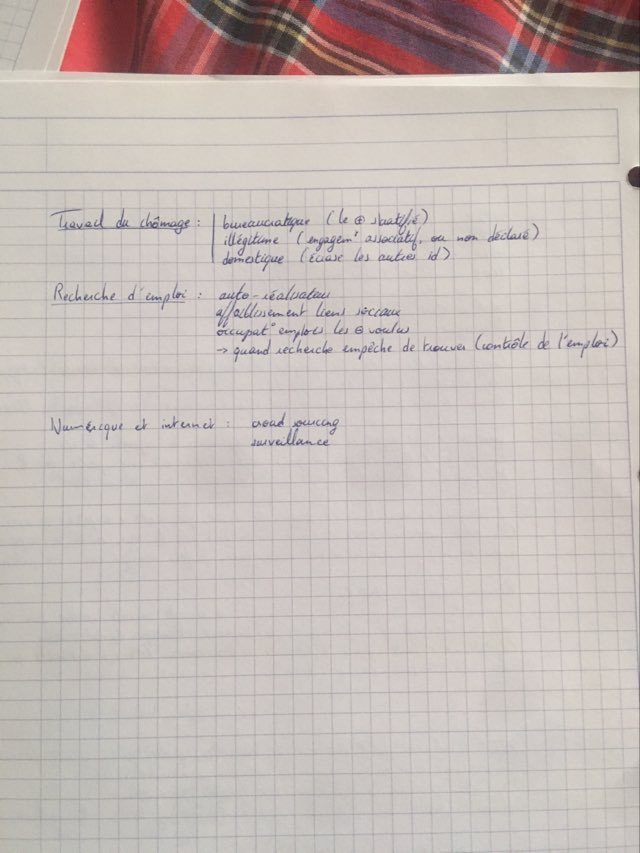 Travail du chômage : bureaucratique (le ⊕ statifié)
illégitime (engagemt associatif, ou non déclaré)
domestique (écrase les autres id)
Recherche d'emploi : auto-réalisateur
affaiblissement liens sociaux
occupat° emplois les ⊖ voulus
→ quand recherche empêche de trouver (contrôle de l'emploi)
Numérique et internet : croud sourcing
surveillance